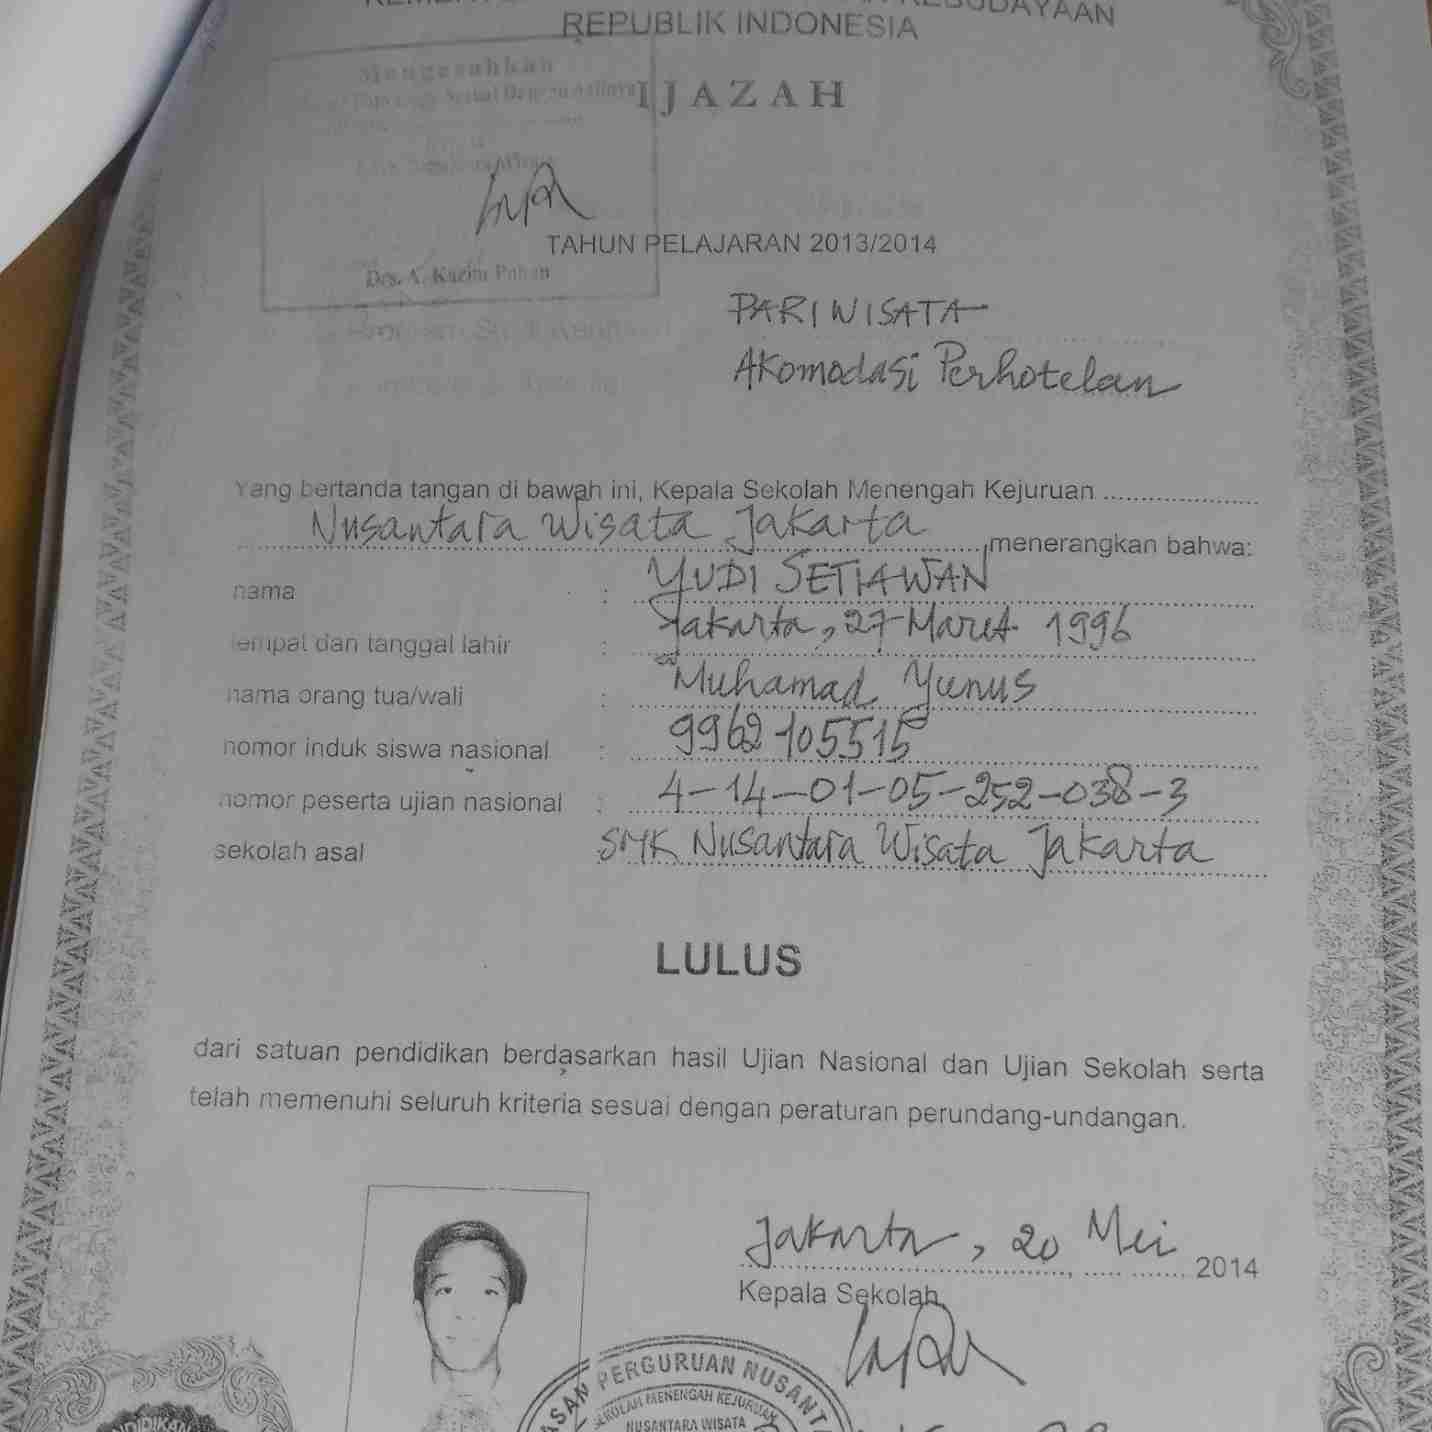 REPUBLIK INDONESIA
Mengesahkan
Sesuai Dengan Aslinya
IJAZAH
TAHUN PELAJARAN 2013/2014
Drs. A.
PARIWISATA
Akomodasi Perhotelan
Yang bertanda tangan di bawah ini, Kepala Sekolah Menengah Kejuruan
Nusantara Wisata Jakarta menerangkan bahwa:
nama : YUDI SETIAWAN
tempat dan tanggal lahir : Jakarta, 27 Maret 1996
nama orang tua/wali : Muhamad Yunus
nomor induk siswa nasional : 9962105515
nomor peserta ujian nasional : 4-14-01-05-252-038-3
sekolah asal SMK Nusantara Wisata Jakarta
LULUS
dari satuan pendidikan berdasarkan hasil Ujian Nasional dan Ujian Sekolah serta
telah memenuhi seluruh kriteria sesuai dengan peraturan perundang-undangan.
Jakarta, 20 Mei 2014
Kepala Sekolah,
PERGURUAN
SEKOLAH MENENGAH KEJURUAN
NUSANTARA WISATA